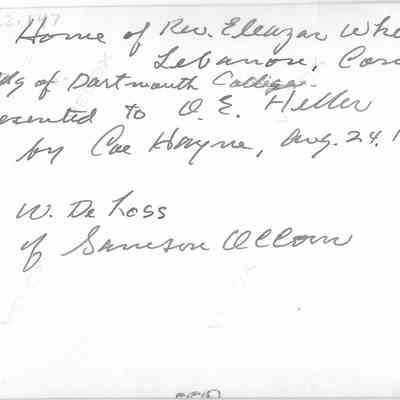 Home of Rev. Eleazar Whe
Lebanon, Con
dg of Dartmouth College.
esented to O. E. Heller
by Coe Hayne, Aug. 24, 1
W. De Loss
of Samson Occom